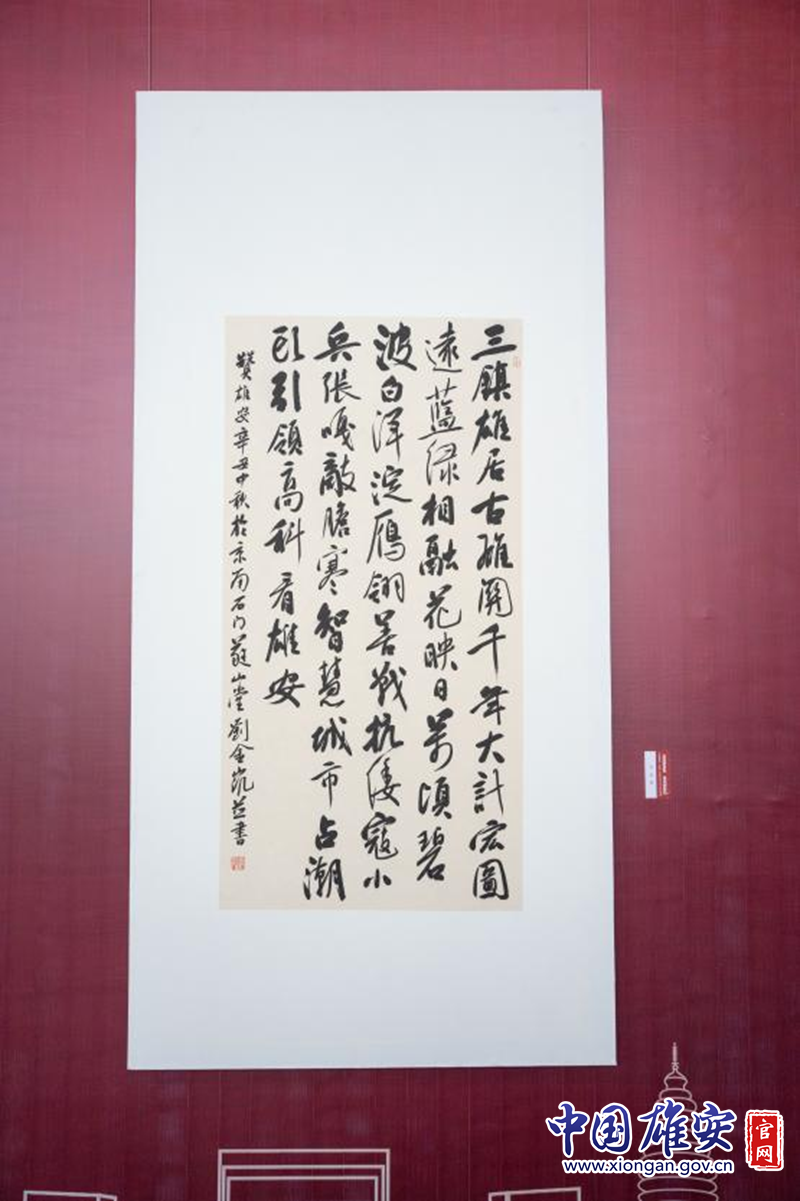 三鎮雄居古雄關千年大計宏圖
遠藍绿相融花映日萬頃碧
波白洋淀雁翎善戰抗倭寇小
兵張嘎敵膽寒智慧城市占潮
引領高科看雄安
贊雄安辛丑中秋於京南石门嶷山堂劉金凱并書
中国雄安
官网
www.xiongan.gov.cn